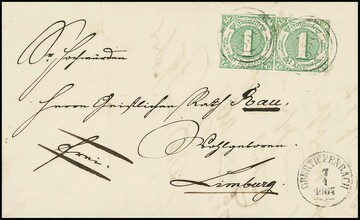 1 1
Sr Hochwürden
Herrn Geistlichen Rath Rau.
Wohlgeboren.
frei.
Limburg.
OBERTIEFENBACH
7
1
1867